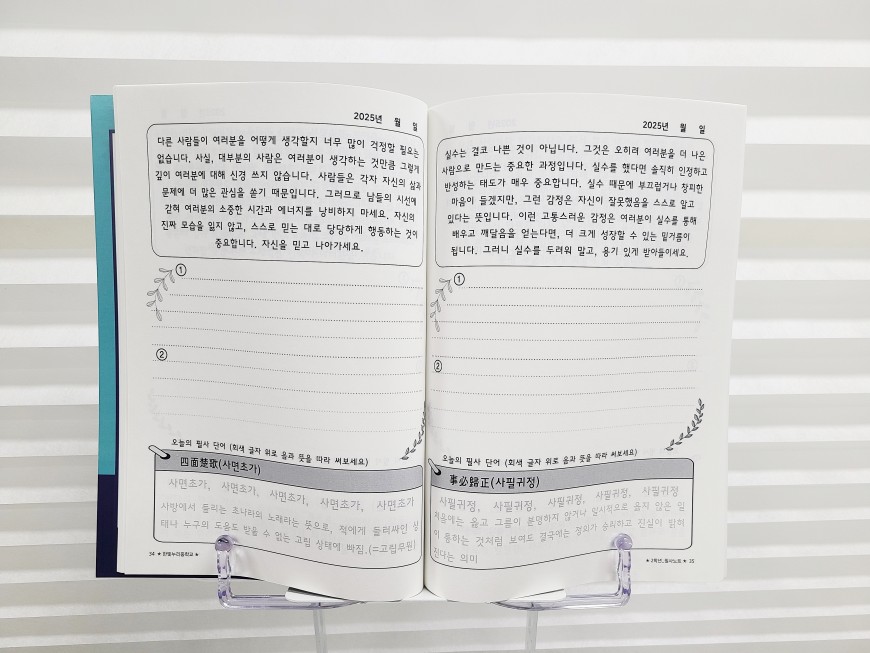 2025년 월 일
다른 사람들이 여러분을 어떻게 생각할지 너무 많이 걱정할 필요는
없습니다. 사실, 대부분의 사람은 여러분이 생각하는 것만큼 그렇게
깊이 여러분에 대해 신경 쓰지 않습니다. 사람들은 각자 자신의 삶과
문제에 더 많은 관심을 쏟기 때문입니다. 그러므로 남들의 시선에
갇혀 여러분의 소중한 시간과 에너지를 낭비하지 마세요. 자신의
진짜 모습을 잃지 않고, 스스로 믿는 대로 당당하게 행동하는 것이
중요합니다. 자신을 믿고 나아가세요.
①
②
오늘의 필사 단어 (회색 글자 위로 음과 뜻을 따라 써보세요)
四面楚歌(사면초가)
사면초가, 사면초가, 사면초가, 사면초가, 사면초가
사방에서 들리는 초나라의 노래라는 뜻으로, 적에게 둘러싸인 상
태나 누구의 도움도 받을 수 없는 고립 상태에 빠짐.(=고립무원)
34 ★ 한빛누리중학교 ★
2025년 월 일
실수는 결코 나쁜 것이 아닙니다. 그것은 오히려 여러분을 더 나은
사람으로 만드는 중요한 과정입니다. 실수를 했다면 솔직히 인정하고
반성하는 태도가 매우 중요합니다. 실수 때문에 부끄럽거나 창피한
마음이 들겠지만, 그런 감정은 자신이 잘못했음을 스스로 알고
있다는 뜻입니다. 이런 고통스러운 감정은 여러분이 실수를 통해
배우고 깨달음을 얻는다면, 더 크게 성장할 수 있는 밑거름이
됩니다. 그러니 실수를 두려워 말고, 용기 있게 받아들이세요.
①
②
오늘의 필사 단어 (회색 글자 위로 음과 뜻을 따라 써보세요)
事必歸正(사필귀정)
사필귀정, 사필귀정, 사필귀정, 사필귀정, 사필귀정
처음에는 옳고 그름이 분명하지 않거나 일시적으로 옳지 않은 일
이 통하는 것처럼 보여도 결국에는 정의가 승리하고 진실이 밝혀
진다는 의미
★ 2학년_필사노트 ★ 35